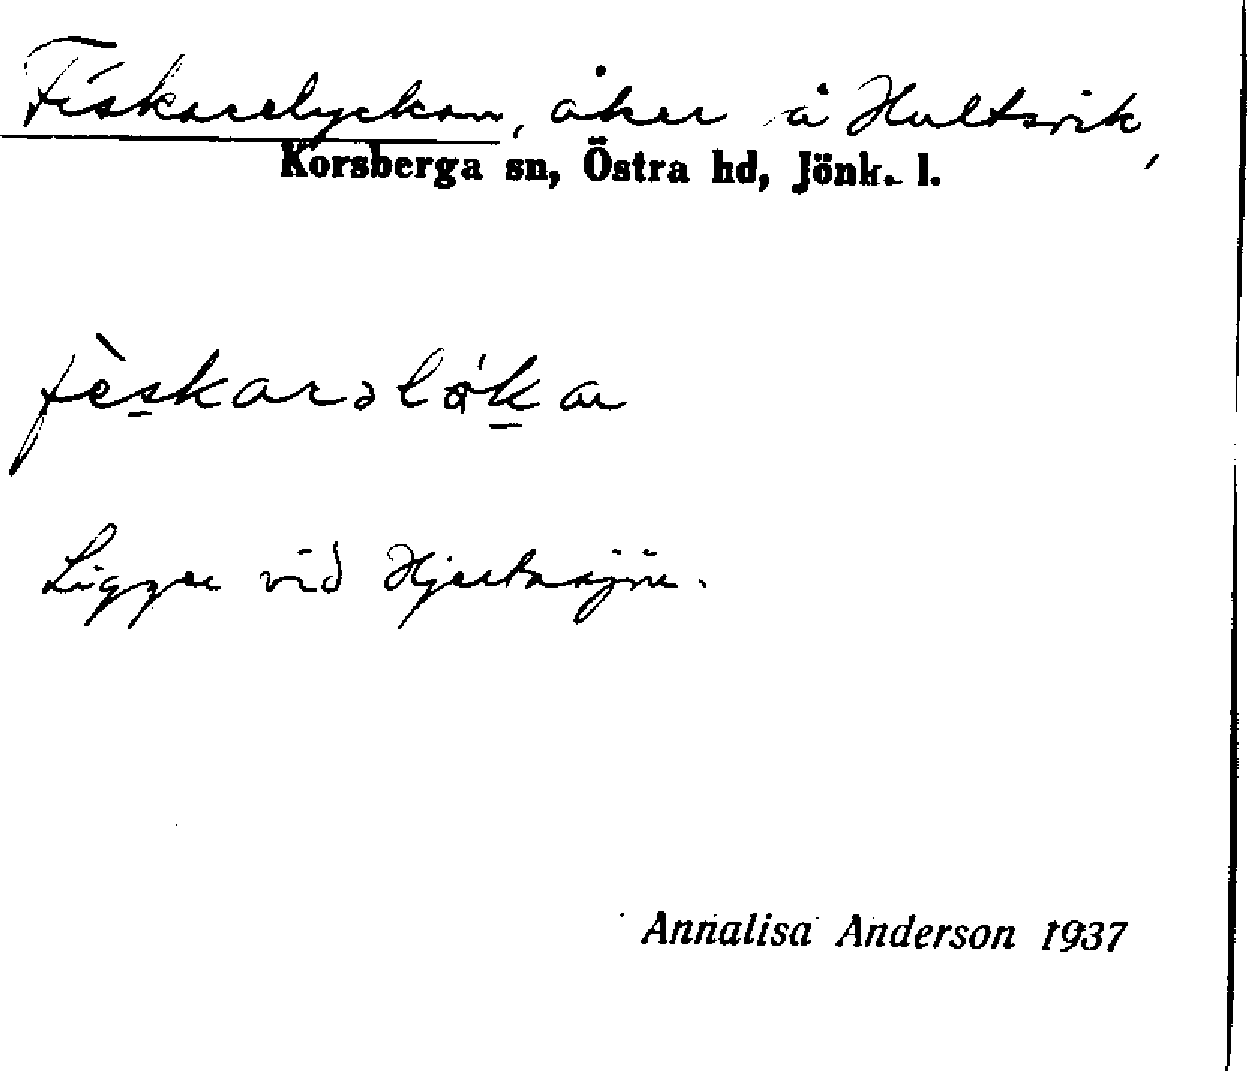 Fiskarelyckan, åker å Hultsvik,
Korsberga sn, Östra hd, Jönk. l.
fèskarəlø̀kan
Ligger vid Hjertasjön.
Annalisa Anderson 1937